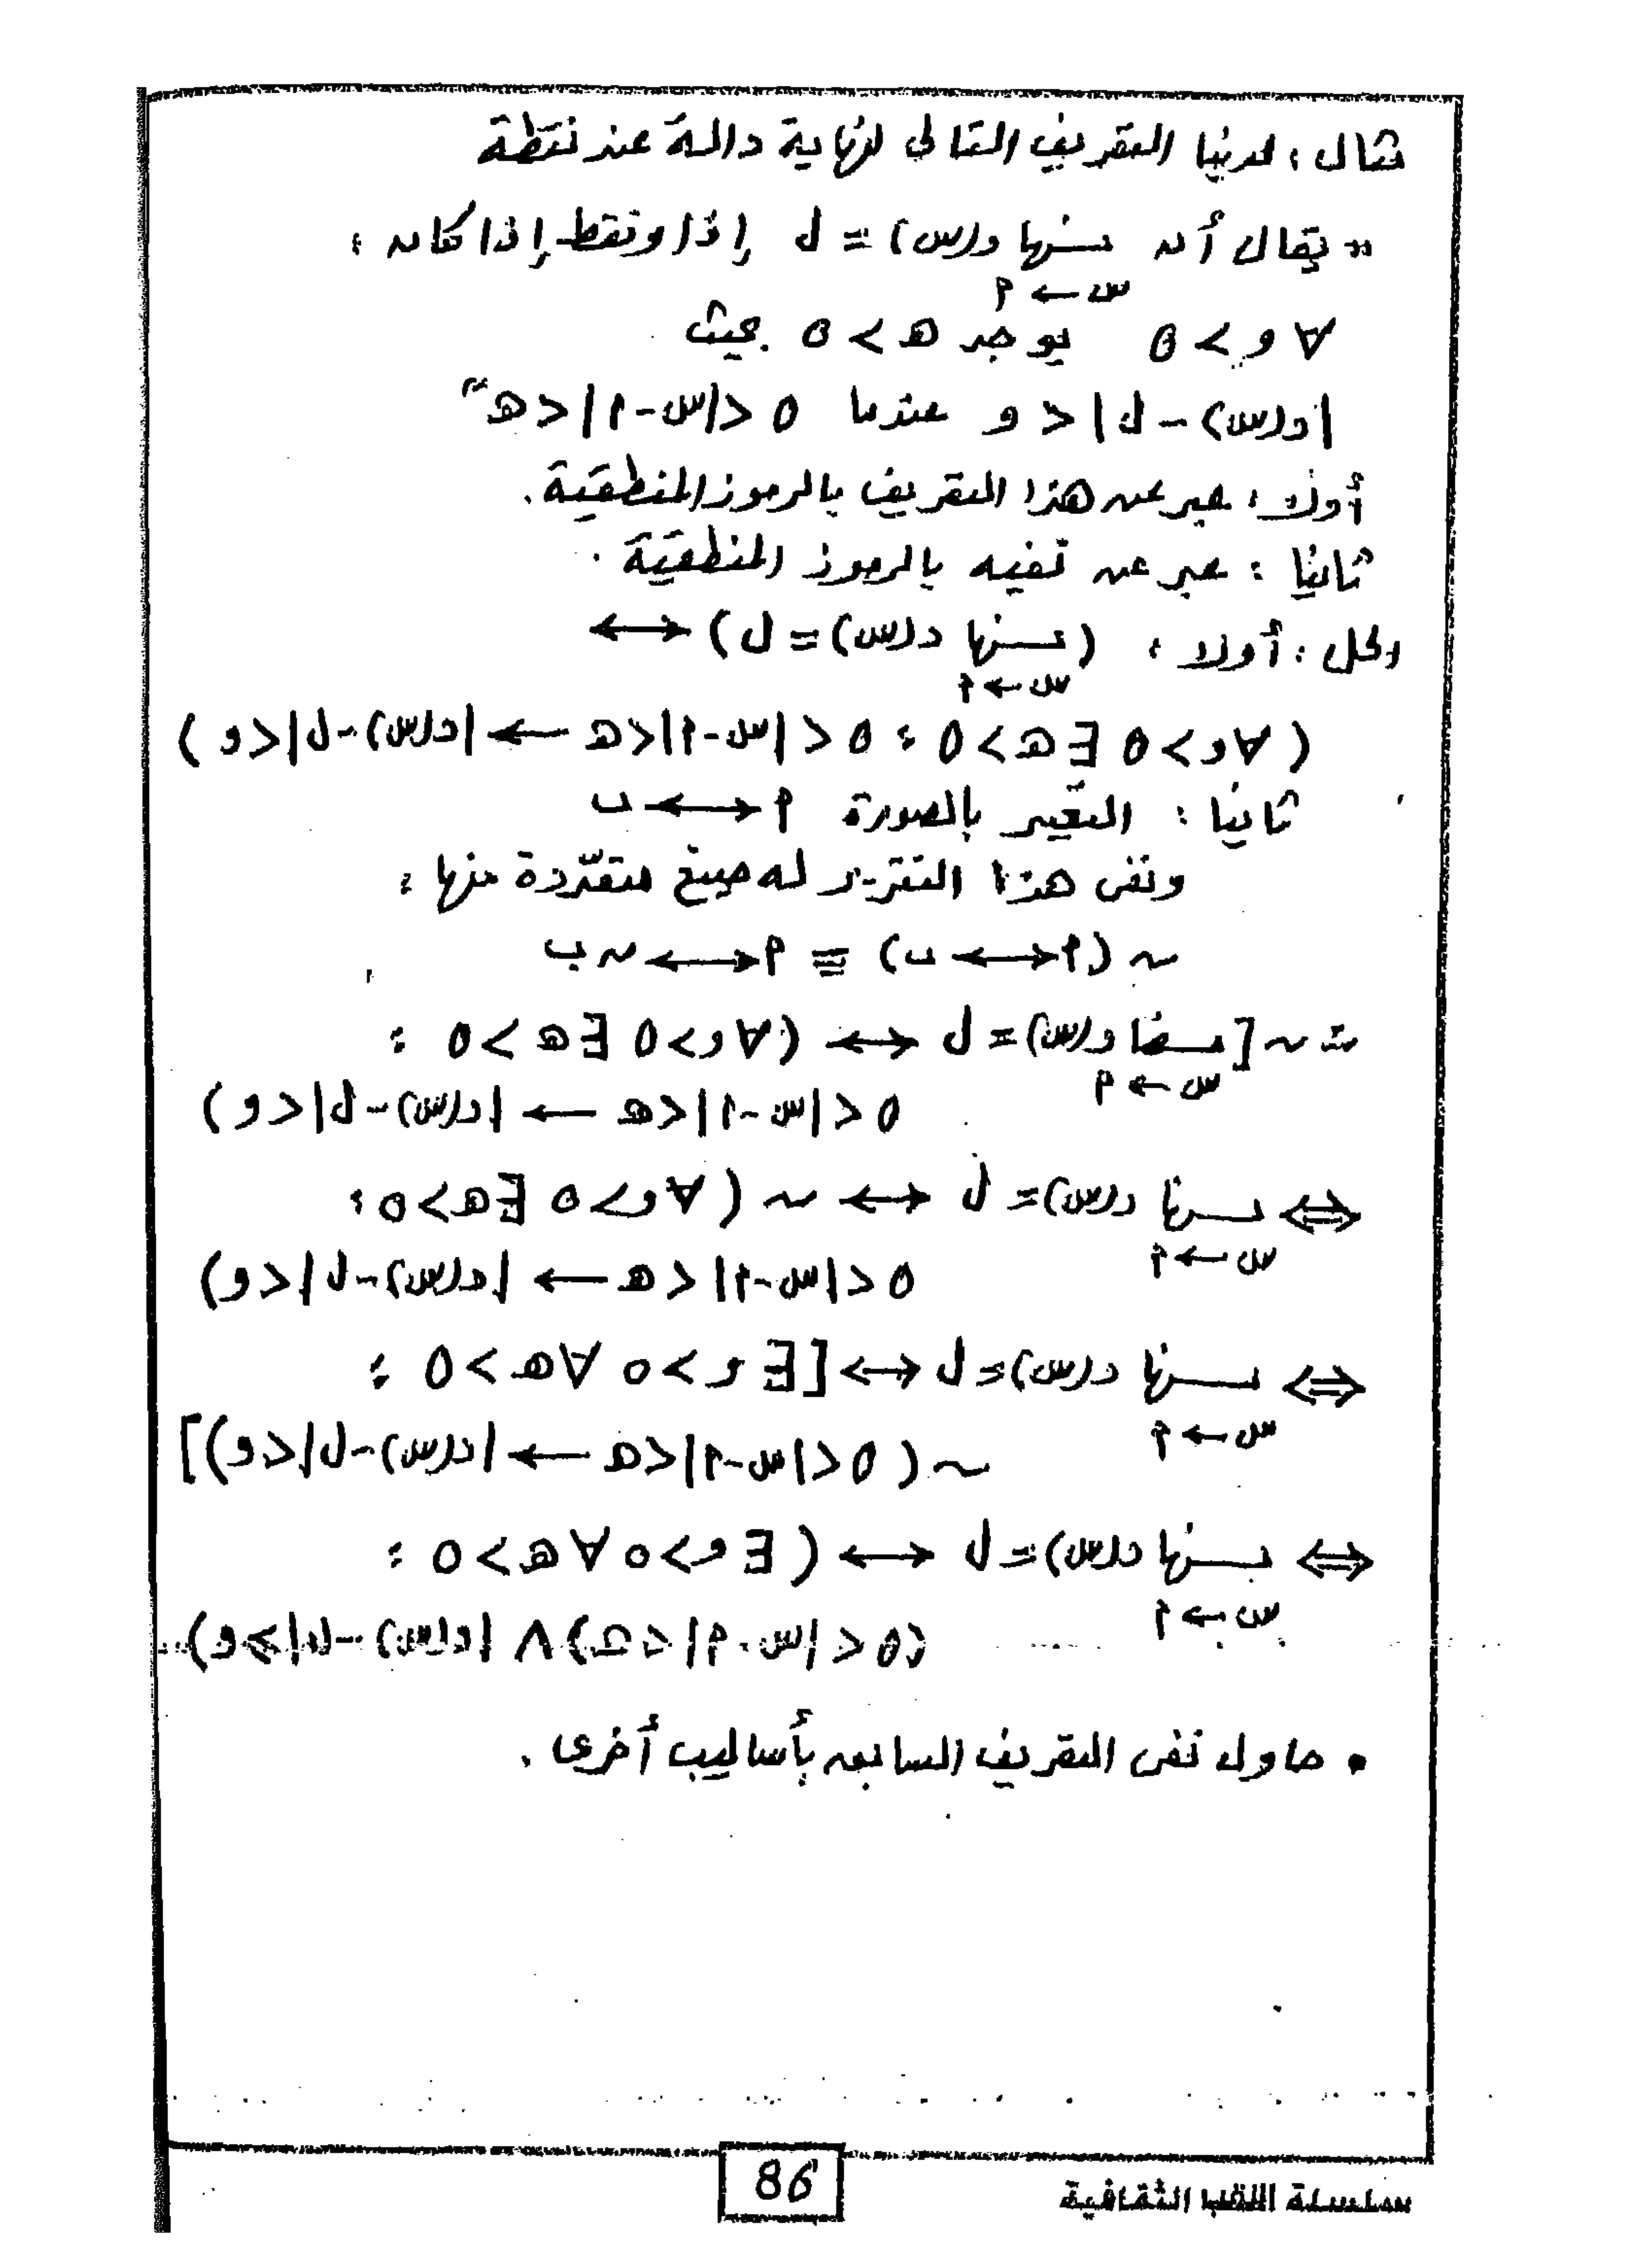 مثال : لدينا التعريف التالى لنهاية دالة عند نقطة
"يقال أن نـهـا د(س) = ل إذا وفقط إذا كان :
س ← أ
∀ و > 0 يوجد ه > 0 بحيث
|د(س) - ل| < و عندما 0 < |س - أ| < ه"
أولاً : عبر عن هذا التعريف بالرموز المنطقية .
ثانيًا : عبر عن نفيه بالرموز المنطقية .
الحل : أولا : (نـهـا د(س) = ل) ↔
س ← أ
(∀ و > 0 ∃ ه > 0 : 0 < |س - أ| < ه ← |د(س) - ل| < و)
ثانيًا : التعبير بالصورة أ ↔ ب
ونفى هذا التقرير له صيغ متعددة منها :
~ (أ ↔ ب) ≡ أ ↔ ~ ب
∴ ~ [نـهـا د(س) = ل ↔ (∀ و > 0 ∃ ه > 0 :
س ← أ
0 < |س - أ| < ه ← |د(س) - ل| < و)
⇔ نـهـا د(س) = ل ↔ ~ (∀ و > 0 ∃ ه > 0 :
س ← أ
0 < |س - أ| < ه ← |د(س) - ل| < و)
⇔ نـهـا د(س) = ل ↔ [∃ و > 0 ∀ ه > 0 :
س ← أ
~ (0 < |س - أ| < ه ← |د(س) - ل| < و)]
⇔ نـهـا د(س) = ل ↔ (∃ و > 0 ∀ ه > 0 :
س ← أ
(0 < |س - أ| < ه) ∧ |د(س) - ل| ≥ و)
• حاول نفى التعريف السابق بأساليب أخرى .
86
سلسلة الثقافية